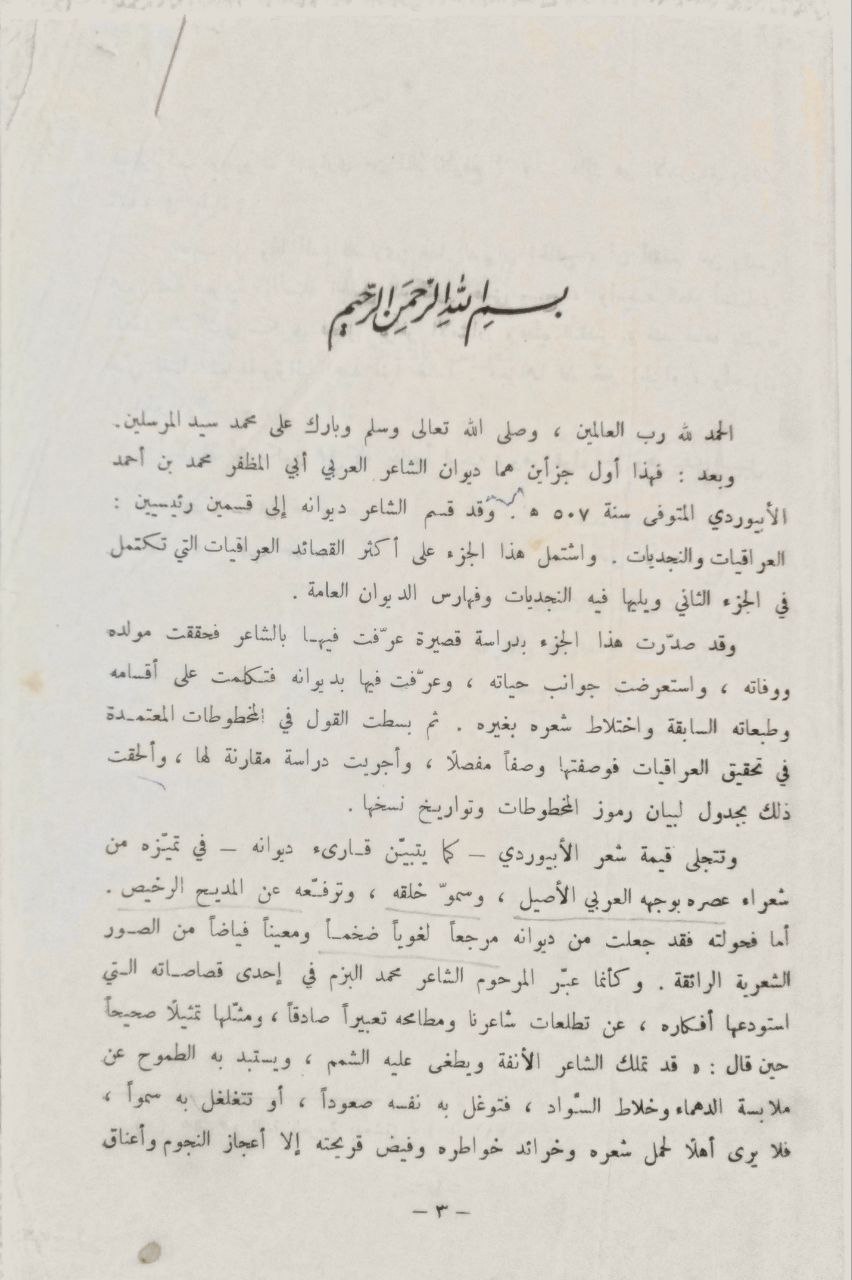 بسم الله الرحمن الرحيم
الحمد لله رب العالمين ، وصلى الله تعالى وسلم وبارك على محمد سيد المرسلين.
وبعد : فهذا أول جزأين هما ديوان الشاعر العربي أبي المظفر محمد بن أحمد
الأبيوردي المتوفى سنة ٥٠٧ ه . وقد قسم الشاعر ديوانه إلى قسمين رئيسيين :
العراقيات والنجديات . واشتمل هذا الجزء على أكثر القصائد العراقيات التي تكتمل
في الجزء الثاني ويليها فيه النجديات وفهارس الديوان العامة .
وقد صدّرت هذا الجزء بدراسة قصيرة عرّفت فيها بالشاعر فحققت مولده
ووفاته ، واستعرضت جوانب حياته ، وعرّفت فيها بديوانه فتكلمت على أقسامه
وطبعاته السابقة واختلاط شعره بغيره . ثم بسطت القول في المخطوطات المعتمدة
في تحقيق العراقيات فوصفتها وصفاً مفصلًا ، وأجريت دراسة مقارنة لها ، وألحقت
ذلك بجدول لبيان رموز المخطوطات وتواريخ نسخها .
وتتجلى قيمة شعر الأبيوردي – كما يتبيّن قارىء ديوانه – في تميّزه من
شعراء عصره بوجهه العربي الأصيل ، وسموّ خلقه ، وترفّعه عن المديح الرخيص .
أما فحولته فقد جعلت من ديوانه مرجعاً لغوياً ضخماً ومعيناً فياضاً من الصور
الشعرية الرائقة . وكأنما عبّر المرحوم الشاعر محمد البزم في إحدى قصاصاته التي
استودعها أفكاره ، عن تطلعات شاعرنا ومطامحه تعبيراً صادقاً ، ومثّلها تمثيلًا صحيحاً
حين قال : « قد تملك الشاعر الأنفة ويطغى عليه الشمم ، ويستبد به الطموح عن
ملابسة الدهماء وخلاط السّواد ، فتوغل به نفسه صعوداً ، أو تتغلغل به سمواً ،
فلا يرى أهلًا لحمل شعره وخرائد خواطره وفيض قريحته إلا أعجاز النجوم وأعناق
– ٣ –